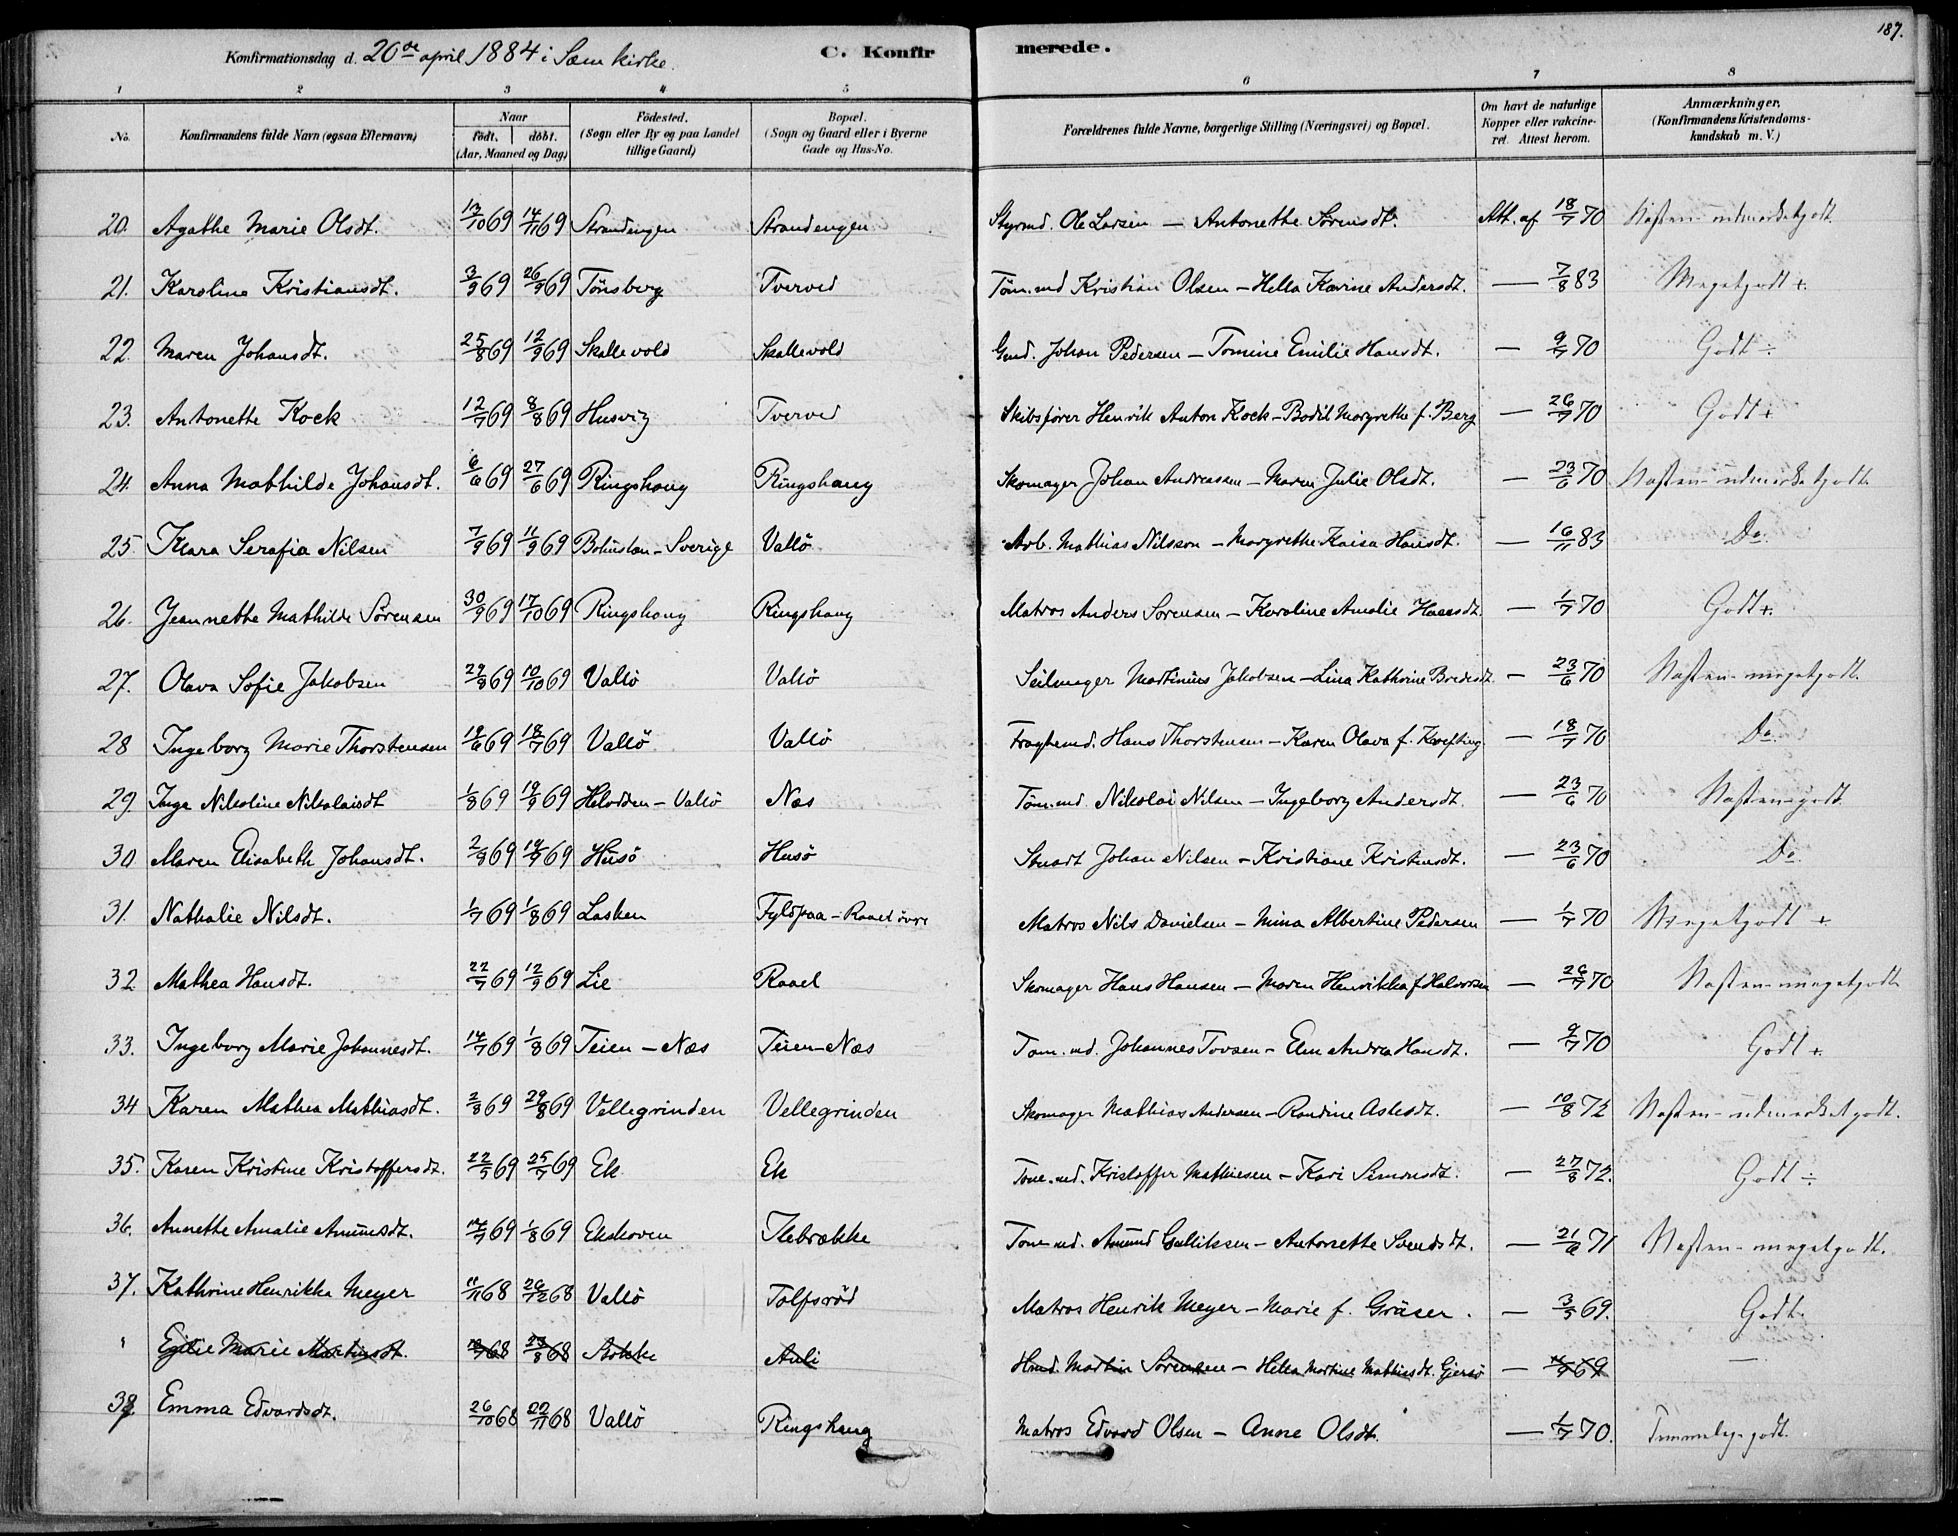 187.
Konfirmationsdag d. 20de april 1884 i Sæm kirke.
C. Konfirmerede.
1 2 3 4 5 6 7 8
No. Konfirmandens fulde Navn (ogsaa Efternavn) Naar født. døbt. (Aar, Maaned og Dag) Fødested. (Sogn eller By og paa Landet tillige Gaard) Bopæl. (Sogn og Gaard eller i Byerne Gade og Hus-No. Forældrenes fulde Navne, borgerlige Stilling (Næringsvei) og Bopæl. Om havt de naturlige Kopper eller vakcineret. Attest herom. Anmærkninger. (Konfirmandens Kristendomskundskab m. V.)
20. Agathe Marie Olsdt. 13/10 69 14/11 69 Strandengen Strandengen Styrmd. Ole Larsen – Antonette Sørensdt. Att. af 18/7 70 Næsten udmærketgodt
21. Karoline Kristiansdt. 3/9 69 26/9 69 Tönsberg Tverved Töm.md Kristian Olsen – Hella Karine Andersdt. — 7/8 83 Megetgodt +
22. Maren Johansdt. 25/8 69 12/9 69 Skallevold Skallevold Gmd. Johan Pedersen – Tomine Emilie Hansdt. — 9/7 70 Godt ÷
23. Antonette Kock 12/7 69 8/8 69 Husvig Tverved Skibsfører Henrik Anton Kock – Bodil Margrethe f. Berg — 26/7 70 Godt +
24. Anna Mathilde Johansdt. 6/6 69 27/6 69 Ringshaug Ringshaug Skomager Johan Andreassen – Maren Julie Olsdt. — 23/6 70 Næsten udmærketgodt
25 Klara Serafia Nilsen 7/9 69 11/9 69 Bohuslan – Sverige Vallö Arb. Mathias Nilsson – Margrethe Kaisa Hansdt. — 16/11 83 Do.
26. Jeannette Mathilde Sörensen 30/9 69 17/10 69 Ringshaug Ringshaug Matros Anders Sörensen – Karoline Amalie Hansdt. — 1/7 70 Godt +
27. Olava Sofie Jakobsen 29/8 69 10/10 69 Vallö Vallö Seilmager Martinius Jakobsen – Lina Kathrine Bredesdt. — 23/6 70 Næsten megetgodt
28 Ingeborg Marie Thorstensen 18/6 69 18/7 69 Vallö Vallö Fragtemd. Hans Thorstensen – Karen Olava f. Krefting — 18/7 70 Do.
29. Inga Nikoline Nikolaisdt 1/8 69 19/9 69 Helvdden – Vallö Næs Töm.md. Nikolai Nilsen – Ingeborg Andersdt. — 23/6 70 Næsten godt
30 Maren Elisabeth Johansdt. 2/8 69 19/9 69 Husö Husö Stuart Johan Nilsen – Kristiane Kristensdt. — 23/6 70 Do
31. Nathalie Nilsdt. 1/7 69 1/8 69 Lasken Fyldpaa – Raael övre Matros Nils Danielsen – Mina Albertine Pedersen — 1/7 70 Megetgodt +
32 Mathea Hansdt. 22/7 69 12/9 69 Lie Raael Skomager Hans Hansen – Maren Henrikka f Halvorsen — 26/7 70 Næsten megetgodt
33. Ingeborg Marie Johannesdt. 14/7 69 1/8 69 Teien – Næs Teien – Næs Tom.md. Johannes Tovsen – Elen Andrea Hansdt. — 9/7 70 Godt +
34 Karen Mathea Mathiasdt. 2/8 69 29/8 69 Vellegrinden Vellegrinden Skomager Mathias Andersen – Randine Aslesdt. — 10/8 72 Næsten udmærketgodt.
35. Karen Kristine Kristoffersdt. 22/5 69 25/7 69 Ek Ek Tom.md. Kristoffer Mathiesen – Kari Simonsdt. — 27/8 72. Godt ÷
36. Annette Amalie Amunsdt. 14/7 69 1/8 69 Ekskoven Ilebrække Tom.md. Amund Gulliksen – Antonette Svendsdt. — 21/6 71 Næsten megetgodt.
37. Kathrine Henrikka Meyer 11/11 68 26/12 68 Vallö Tolfsröd Matros Henrik Meyer – Marie f. Gräser. — 3/5 69. Godt.
" Egilie Marie Martinsdt. 68 68 Auli Hmd. Martin Sörensen – Hella Martine Mathiasdt. — 69 —
38. Emma Edvardsdt. 26/10 68 22/11 68 Vallö Ringshaug Matros Edvard Olsen – Anne Olsdt. — 1/7 70. Temmelig godt.